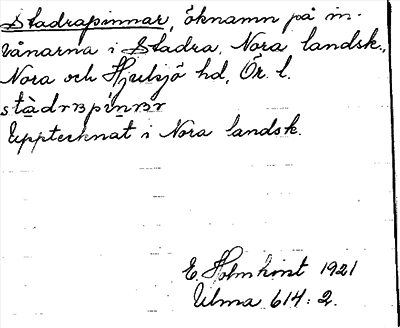 Stadrapinnar, öknamn på in-
vånarna i Stadra, Nora landsk.,
Nora och Hjulsjö hd, Ör. l.
stàdrɜpìnɜr
Upptecknat i Nora landsk.
E. Holmkvist 1921
Ulma 614:2.